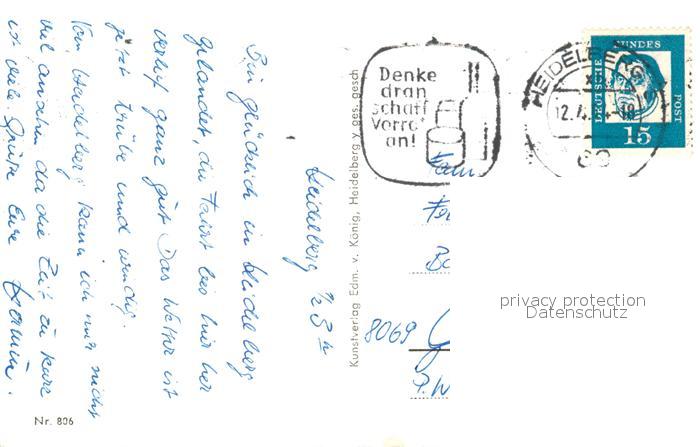 Heidelberg ½ 3 h
Bin glücklich in Heidelberg
gelandet, die Fahrt bis hier her
verlief ganz gut Das Wetter ist
jetzt trübe und windig.
Von Heidelberg kann ich mir nicht
viel ansehen da die Zeit zu kurz
ist viele Grüße Eure
Nr. 806
Kunstverlag Edm. v. König, Heidelberg ges. gesch
Denke
dran
schaff
Vorrat
an!
HEIDELBERG
12.4
DEUTSCHE
BUNDES
POST
15
8069
privacy protection
Datenschutz